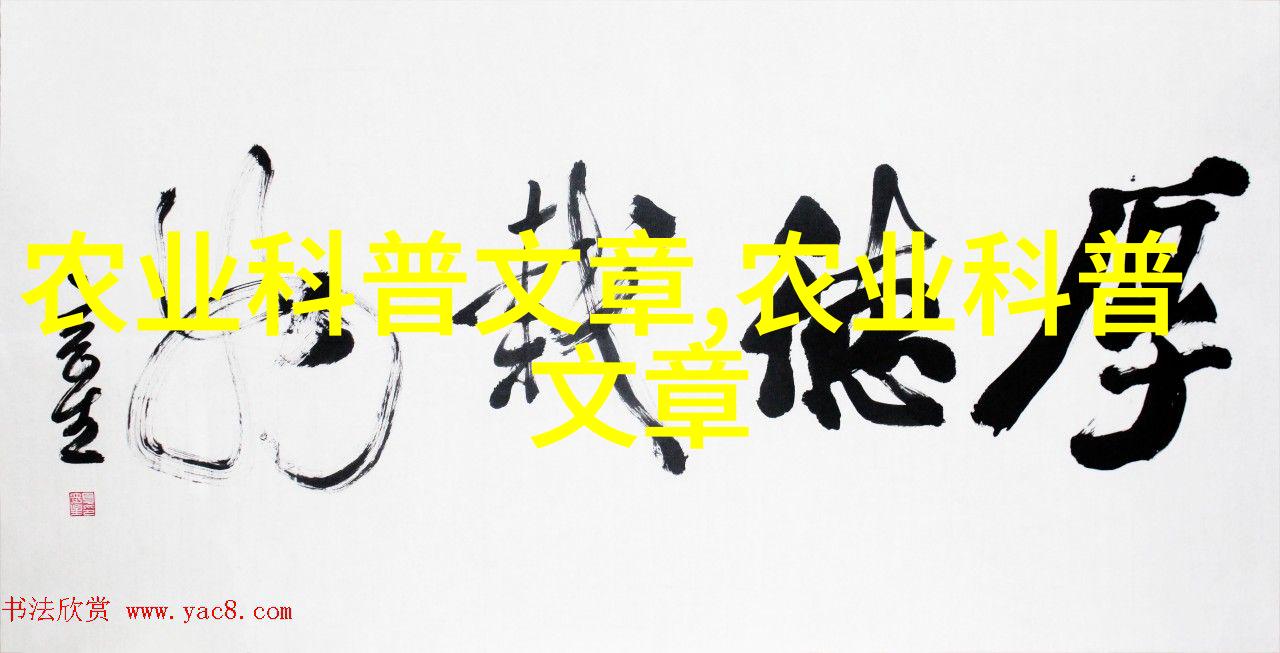 农业科普文章,农业科普
文章
厚德载物
书法欣赏 www.yac8.com